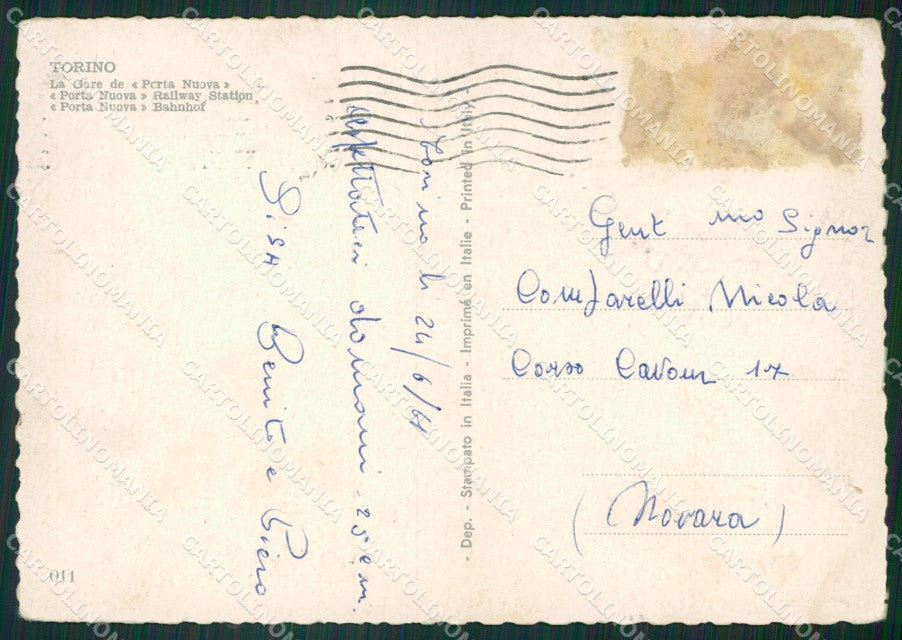 TORINO
La Gare de « Porta Nuova »
« Porta Nuova » Railway Station
« Porta Nuova » Bahnhof
Torino li 24/6/61
aspettateci domani 25 c.m.
Pisa Benito e Piero
- Dep. - Stampato in Italia - Imprimé en Italie - Printed in Italy -
Gent mo Signor
Comfarelli Nicola
Corso Cavour 17
(Novara)
011
CARTOLINOMANIA